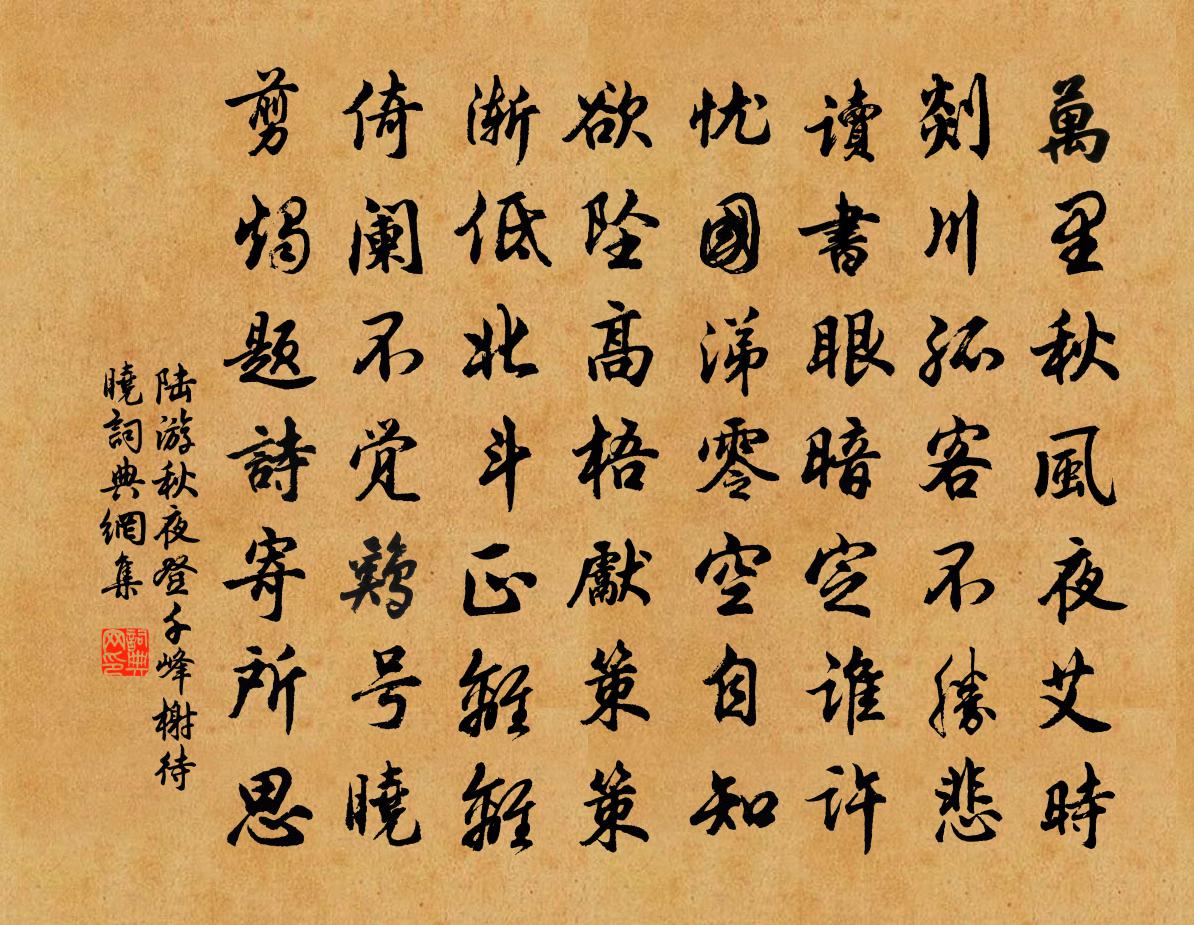 萬里秋風夜艾時
剡川孤客不勝悲
讀書眼暗定誰許
忧國涕零空自知
欲坠高梧獻策策
漸低北斗正離離
倚闌不觉鷄号曉
剪燭题詩寄所思
陆游秋夜登千峰榭待
曉詞典網集
詞典
网印